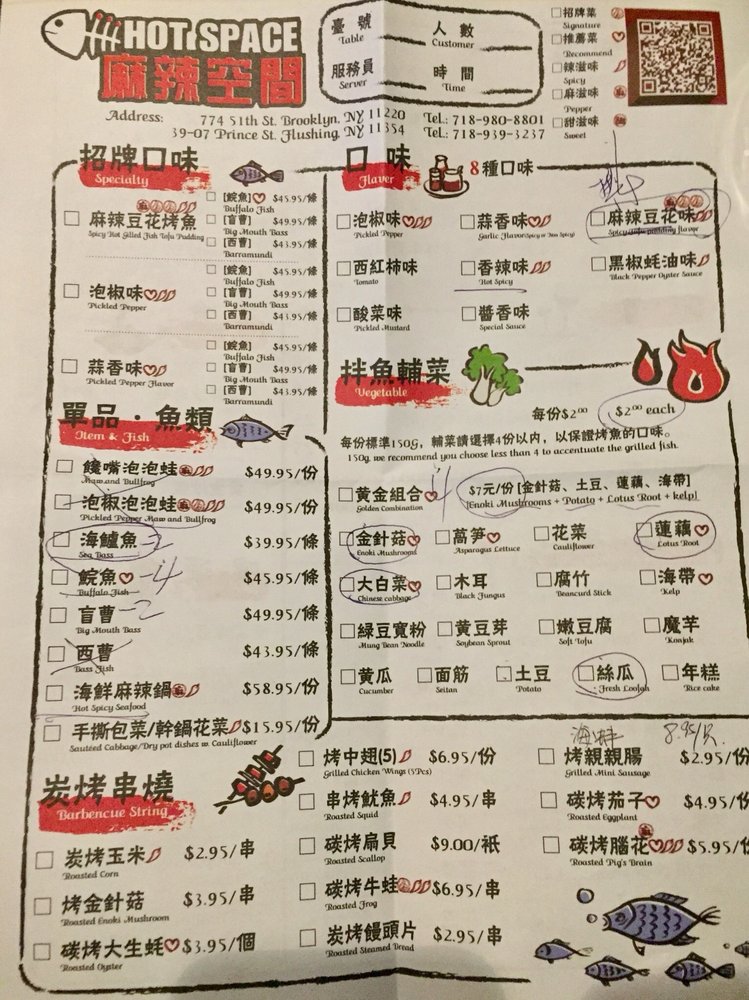 HOT SPACE
麻辣空間
臺號
Table
人數
Customer
服務員
Server
時間
Time
招牌菜
Signature
推薦菜
Recommend
辣滋味
Spicy
麻滋味
Pepper
甜滋味
Sweet
Address: 774 51th St. Brooklyn, NY 11220 Tel.: 718-980-8801
39-07 Prince St. Flushing, NY 11354 Tel.: 718-939-3237
招牌口味
Specialty
麻辣豆花烤魚
Spicy Hot Gilled Fish Tofu Pudding
[鯇魚] $45.95/條
Buffalo Fish
[盲曹] $49.95/條
Big Mouth Bass
[西曹] $43.95/條
Barramundi
泡椒味
Pickled Pepper
[鯇魚] $45.95/條
Buffalo Fish
[盲曹] $49.95/條
Big Mouth Bass
[西曹] $43.95/條
Barramundi
蒜香味
Pickled Pepper Flavor
[鯇魚] $45.95/條
Buffalo Fish
[盲曹] $49.95/條
Big Mouth Bass
[西曹] $43.95/條
Barramundi
口味
Flavor
8種口味
泡椒味
Pickled Pepper
蒜香味
Garlic Flavor(Spicy or Non Spicy)
麻辣豆花味
Spicy tofu pudding flavor
西紅柿味
Tomato
香辣味
Hot Spicy
黑椒蚝油味
Black Pepper Oyster Sauce
酸菜味
Pickled Mustard
醬香味
Special Sauce
單品·魚類
Item & Fish
饞嘴泡泡蛙 $49.95/份
Maw and Bullfrog
泡椒泡泡蛙 $49.95/份
Pickled Pepper Maw and Bullfrog
海鱸魚 -2 $39.95/條
Sea Bass
鯇魚 -4 $45.95/條
Buffalo Fish
盲曹 -2 $49.95/條
Big Mouth Bass
西曹 $43.95/條
Bass Fish
海鮮麻辣鍋 $58.95/份
Hot Spicy Seafood
手撕包菜/幹鍋花菜 $15.95/份
Sauteed Cabbage/Dry pot dishes w. Cauliflower
拌魚輔菜
Vegetable
每份$2.00 $2.00 each
每份標準150g, 輔菜請選擇4份以內, 以保證烤魚的口味。
150g, we recommend you choose less than 4 to accentuate the grilled fish.
黃金組合 $7元/份 [金針菇、土豆、蓮藕、海帶]
Golden Combination [Enoki Mushrooms + Potato + Lotus Root + kelp]
金針菇
Enoki Mushrooms
萵筍
Asparagus Lettuce
花菜
Cauliflower
蓮藕
Lotus Root
大白菜
Chinese cabbage
木耳
Black Fungus
腐竹
Beancurd Stick
海帶
Kelp
綠豆寬粉
Mung Bean Noodle
黃豆芽
Soybean Sprout
嫩豆腐
Soft Tofu
魔芋
Konjak
黃瓜
Cucumber
面筋
Seitan
土豆
Potato
絲瓜
Fresh Loofah
年糕
Rice cake
炭烤串燒
Barbencue String
炭烤玉米 $2.95/串
Roasted Corn
烤金針菇 $3.95/串
Roasted Enoki Mushroom
碳烤大生蚝 $3.95/個
Roasted Oyster
烤中翅(5) $6.95/份
Grilled Chicken Wings (5Pcs)
串烤魷魚 $4.95/串
Roasted Squid
碳烤扇貝 $9.00/祇
Roasted Scallop
碳烤牛蛙 $6.95/串
Roasted Frog
炭烤饅頭片 $2.95/串
Roasted Steamed Bread
8.95/只
烤親親腸 $2.95/份
Grilled Mini Sausage
碳烤茄子 $4.95/份
Roasted Eggplant
碳烤腦花 $5.95/份
Roasted Pig's Brain